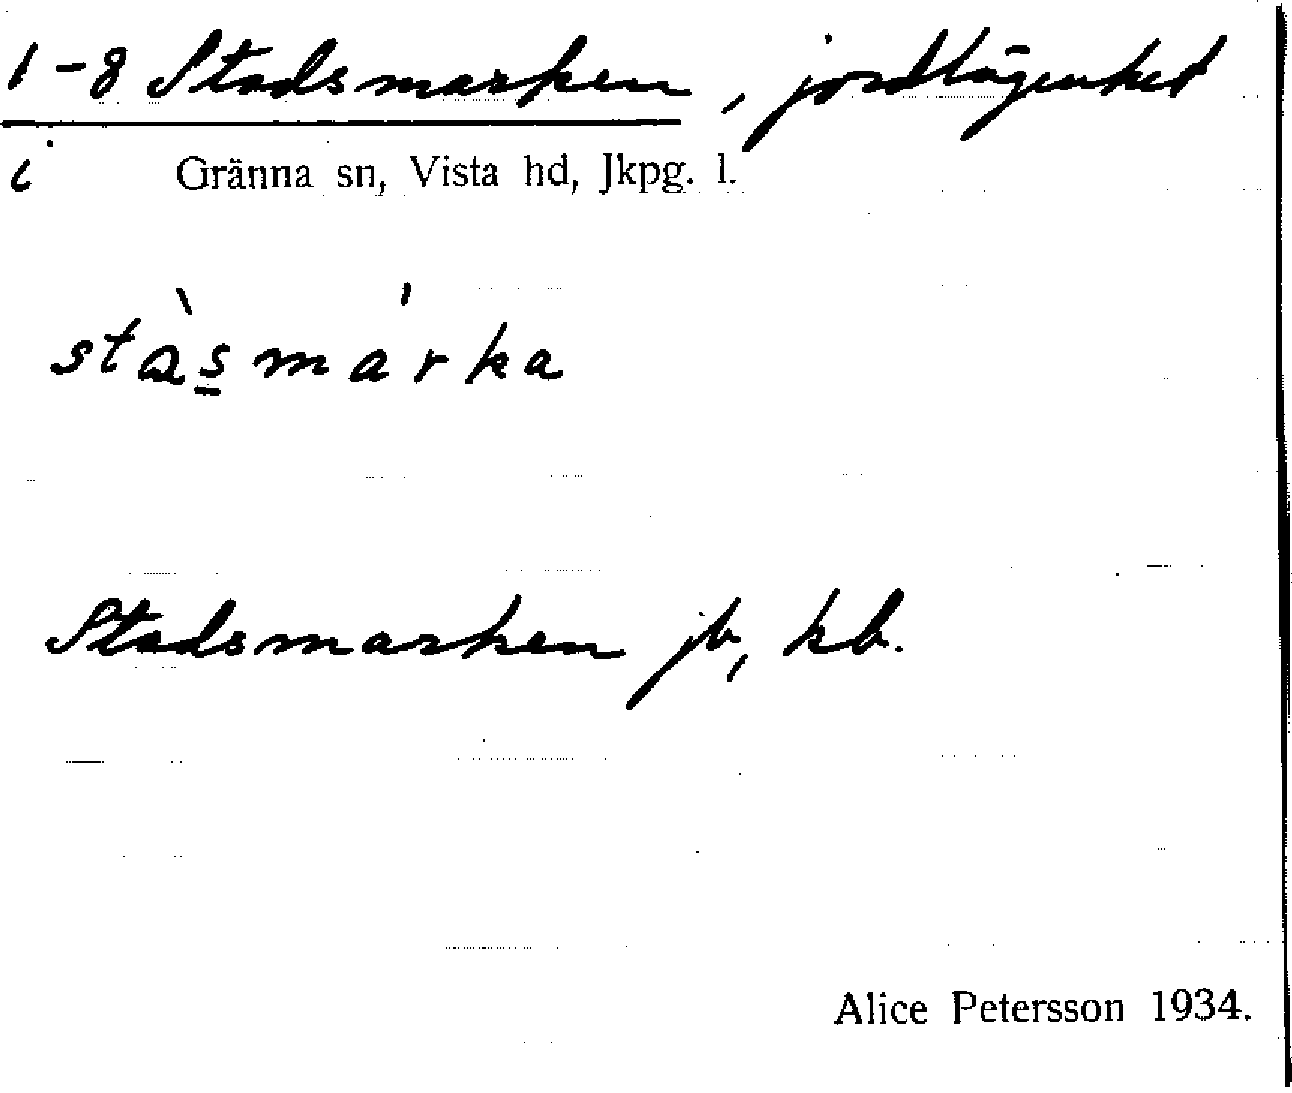 1-8 Stadsmarken, jordlägenhet
i Gränna sn, Vista hd, Jkpg. l.
stàs̲márka
Stadsmarken jb, kb.
Alice Petersson 1934.